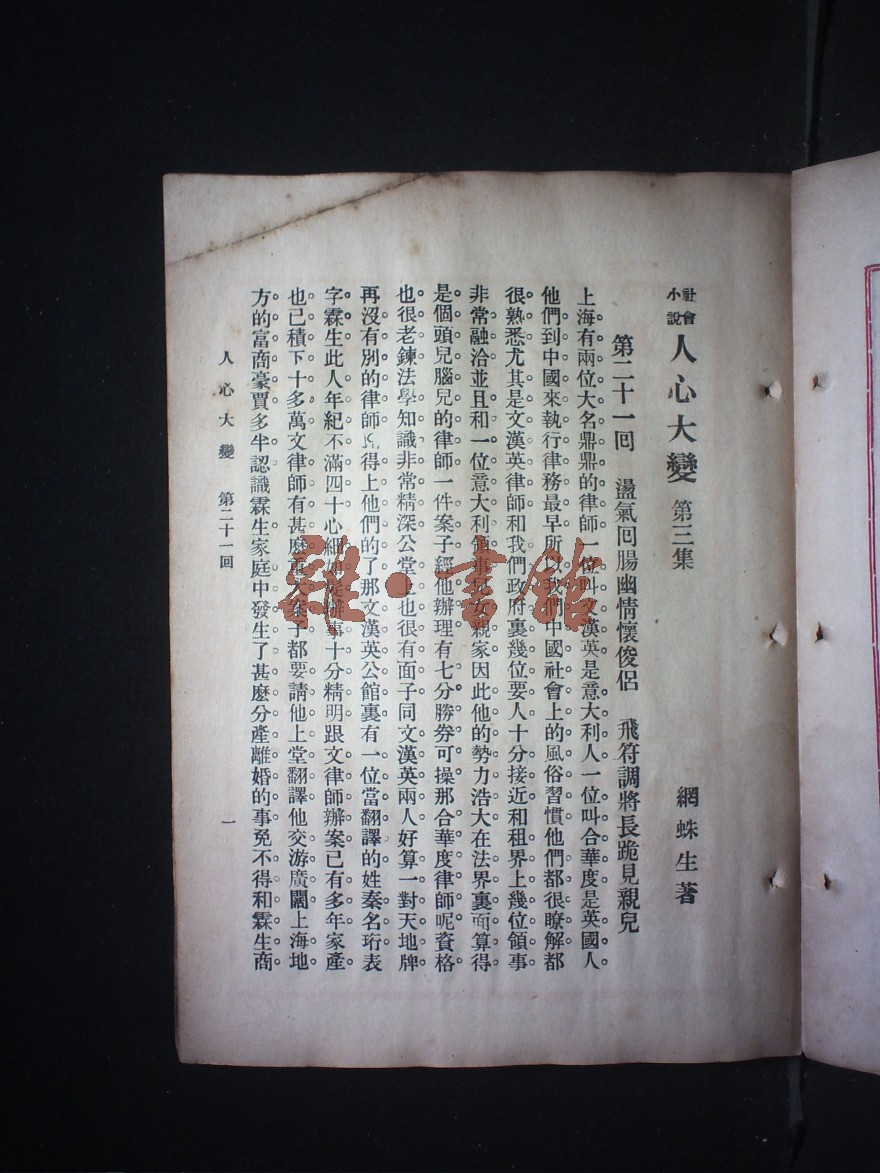 社會小說 人心大變 第三集 網蛛生著
第二十一回 盪氣回腸幽情懷俊侶 飛符調將長跪見親兒
上海有兩位大名鼎鼎的律師一位叫文漢英是意大利人一位叫合華度是英國人
他們到中國來執行律務最早所以我們中國社會上的風俗習慣他們都很瞭解都
很熟悉尤其是文漢英律師和我們政府裏幾位要人十分接近和租界上幾位領事
非常融洽並且和一位意大利領事兒女親家因此他的勢力浩大在法界裏面算得
是個頭兒腦兒的律師一件案子經他辦理有七分勝劵可操那合華度律師呢資格
也很老鍊法學知識非常精深公堂上也很有面子同文漢英兩人好算一對天地牌
再沒有別的律師 得上他們的了那文漢英公館裏有一位當翻譯的姓秦名珩表
字霖生此人年紀不滿四十心細如 辦事十分精明跟文律師辦案已有多年家產
也已積下十多萬文律師有甚麼 大案子都要請他上堂翻譯他交游廣闊上海地
方的富商豪賈多半認識霖生家庭中發生了甚麼分產離婚的事免不得和霖生商
人心大變 第二十一回 一
雜·書館